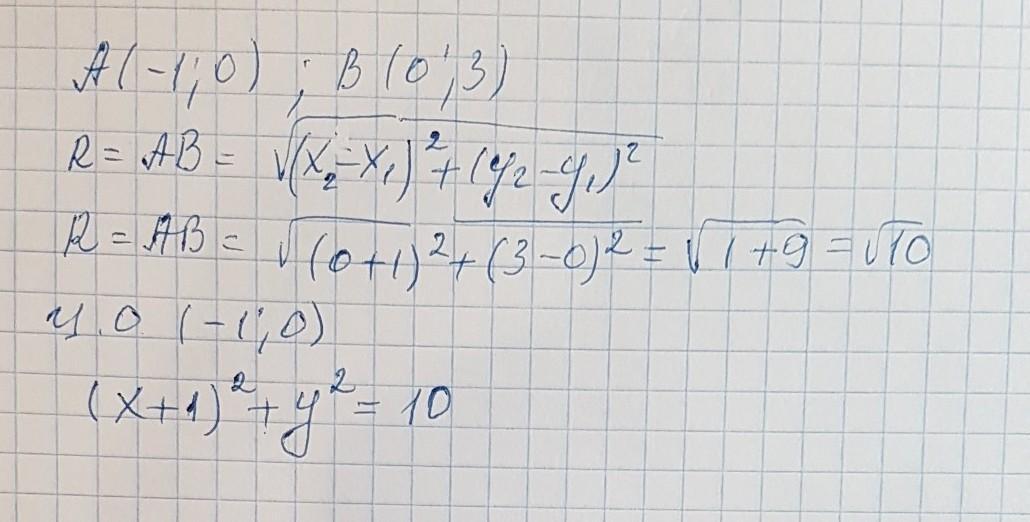 A(-1;0) ; B(0;3)
R = AB = √(x₂-x₁)²+(y₂-y₁)²
R = AB = √(0+1)²+(3-0)² = √1+9 = √10
ц.о (-1;0)
(x+1)²+y² = 10